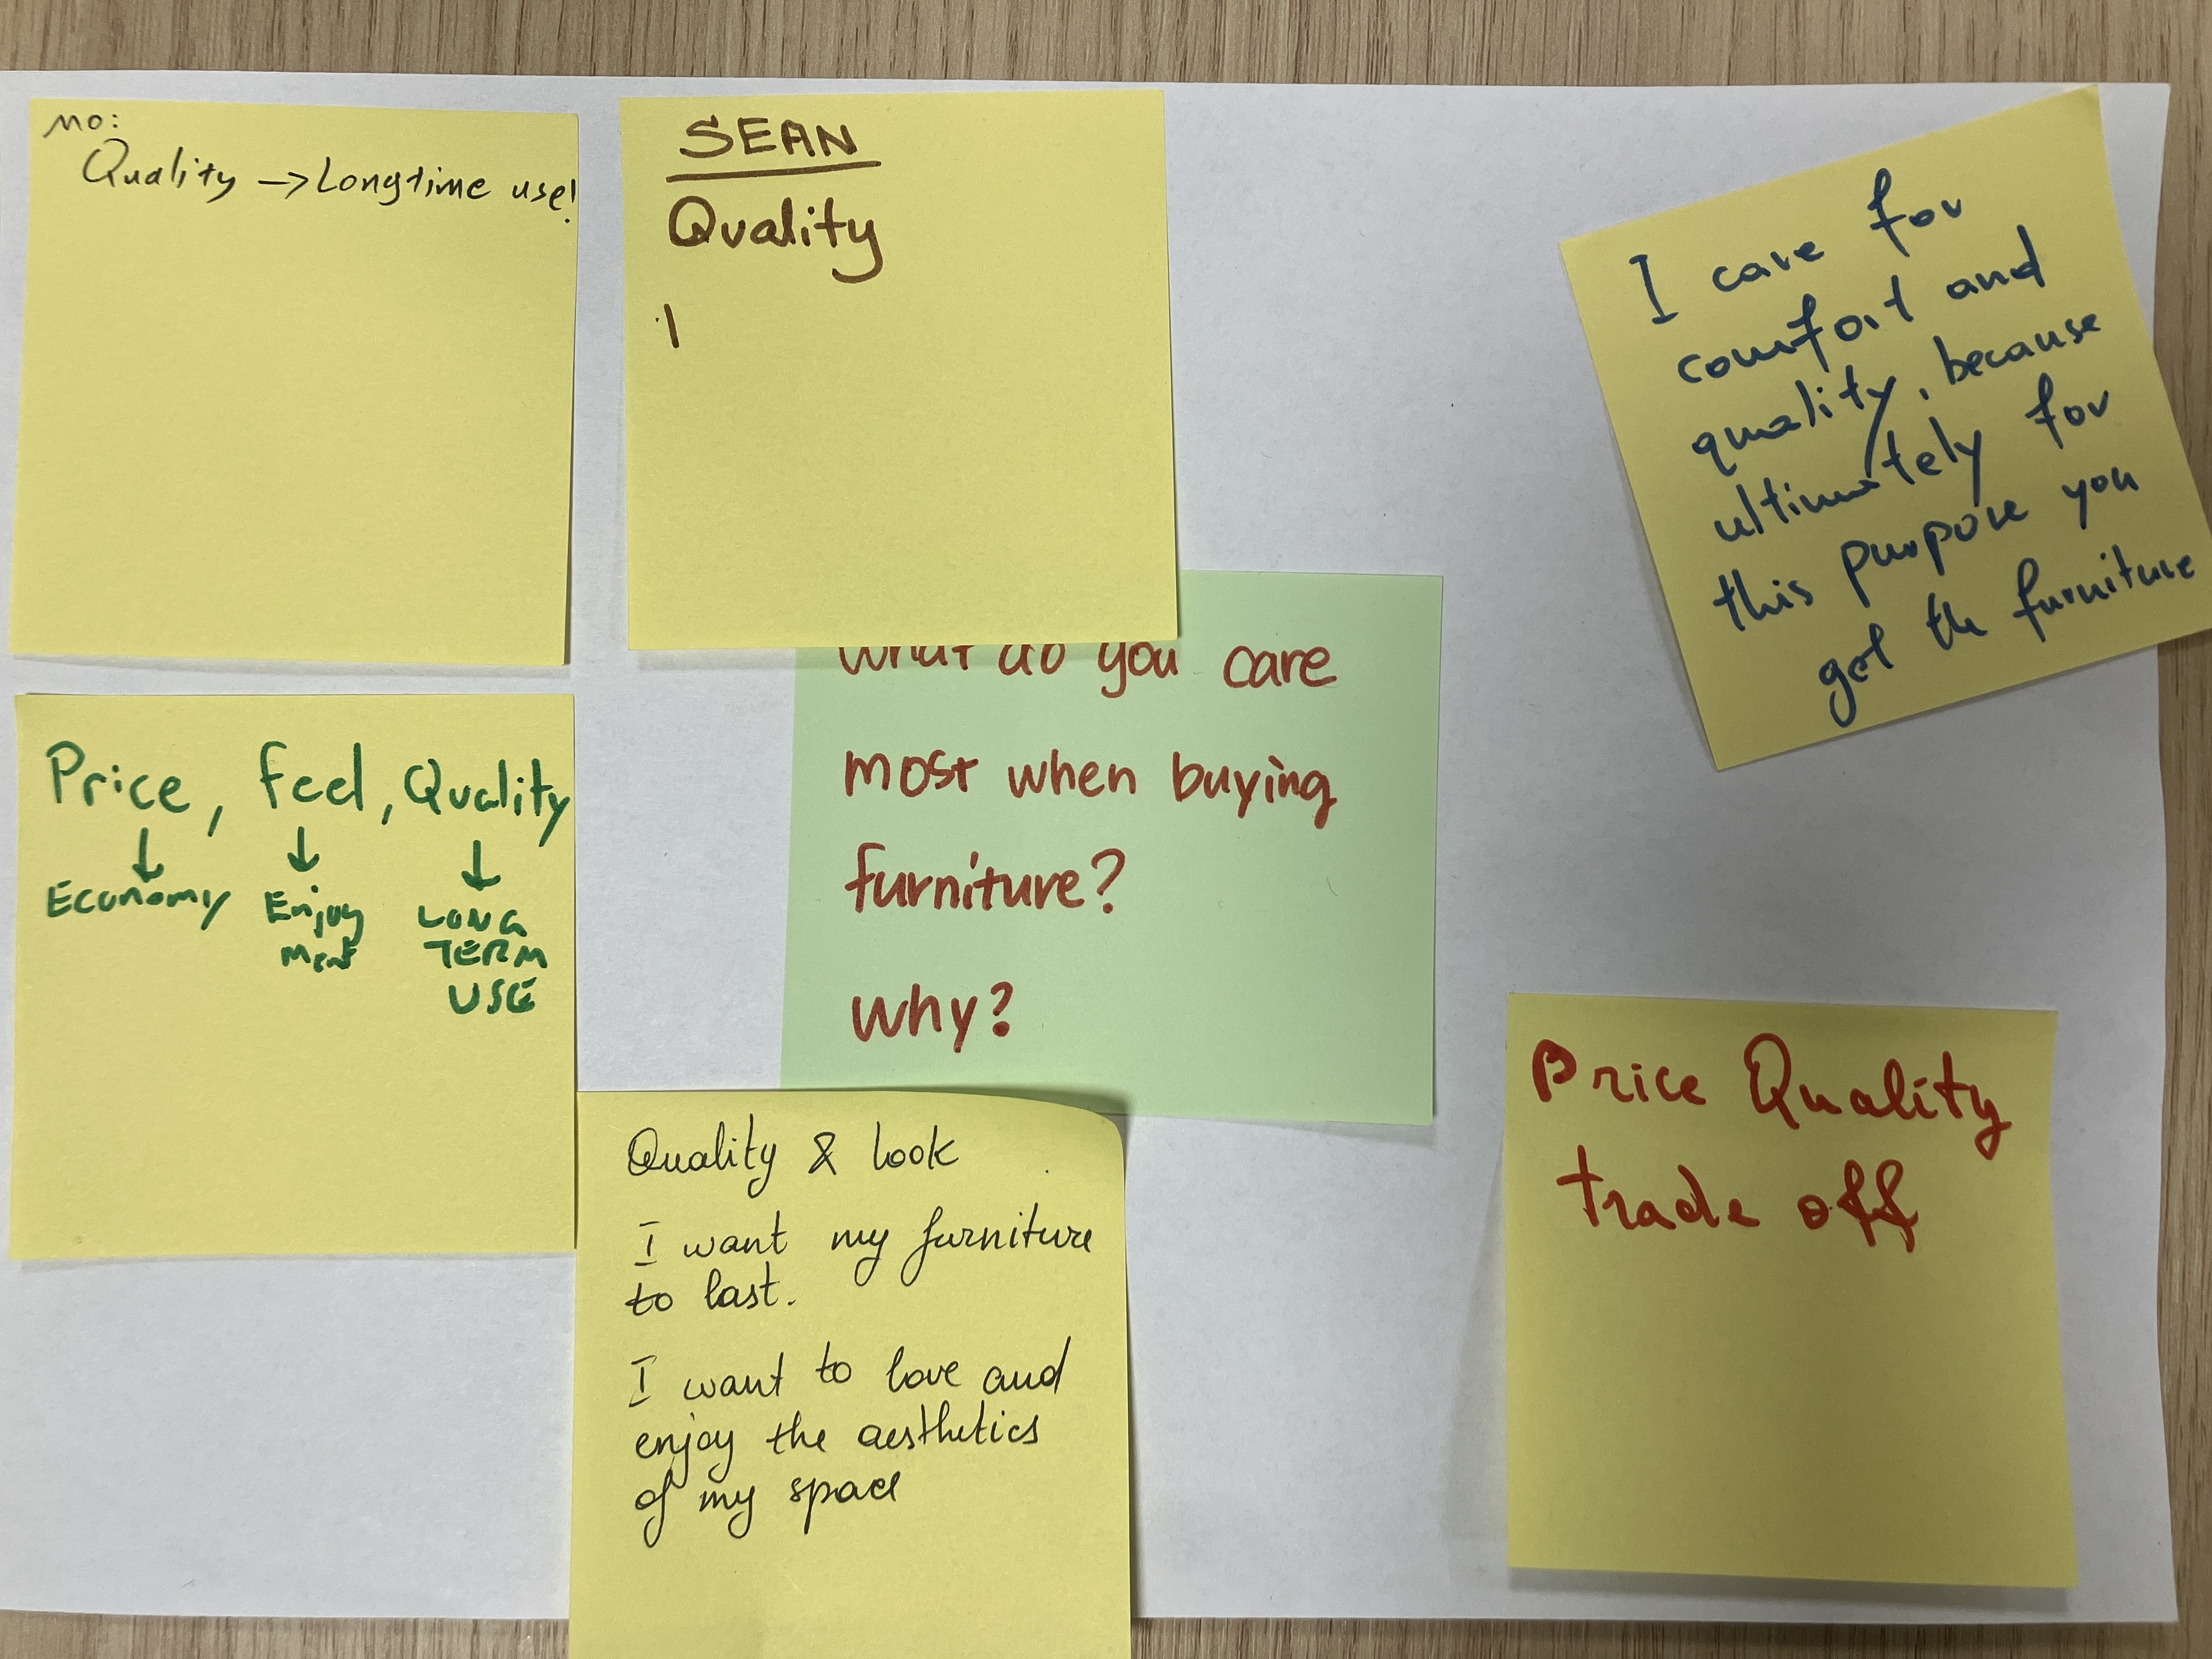 MO:
Quality → Longtime use!
SEAN
Quality
I care for
comfort and
quality, because
ultimately for
this purpose you
get the furniture
What do you care
most when buying
furniture?
why?
Price, feel, Quality
↓ ↓ ↓
Economy Enjoy LONG
ment TERM
USE
Quality & look
I want my furniture
to last.
I want to love and
enjoy the aesthetics
of my space
Price Quality
trade off